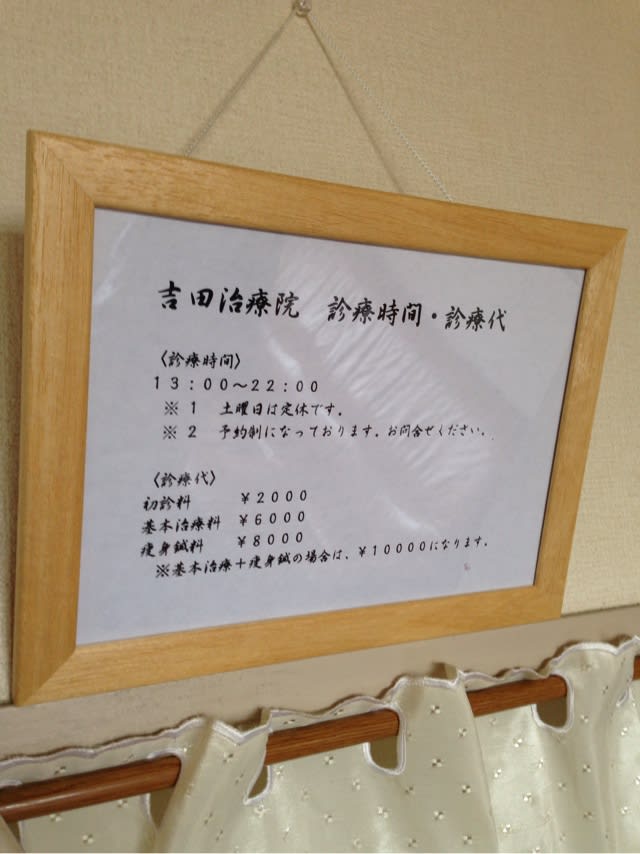 吉田治療院　診療時間・診療代
〈診療時間〉
１３：００～２２：００
※１　土曜日は定休です．
※２　予約制になっております．お問合せください．
〈診療代〉
初診料　￥２０００
基本治療料　￥６０００
痩身鍼料　￥８０００
※基本治療＋痩身鍼の場合は、￥１００００になります．